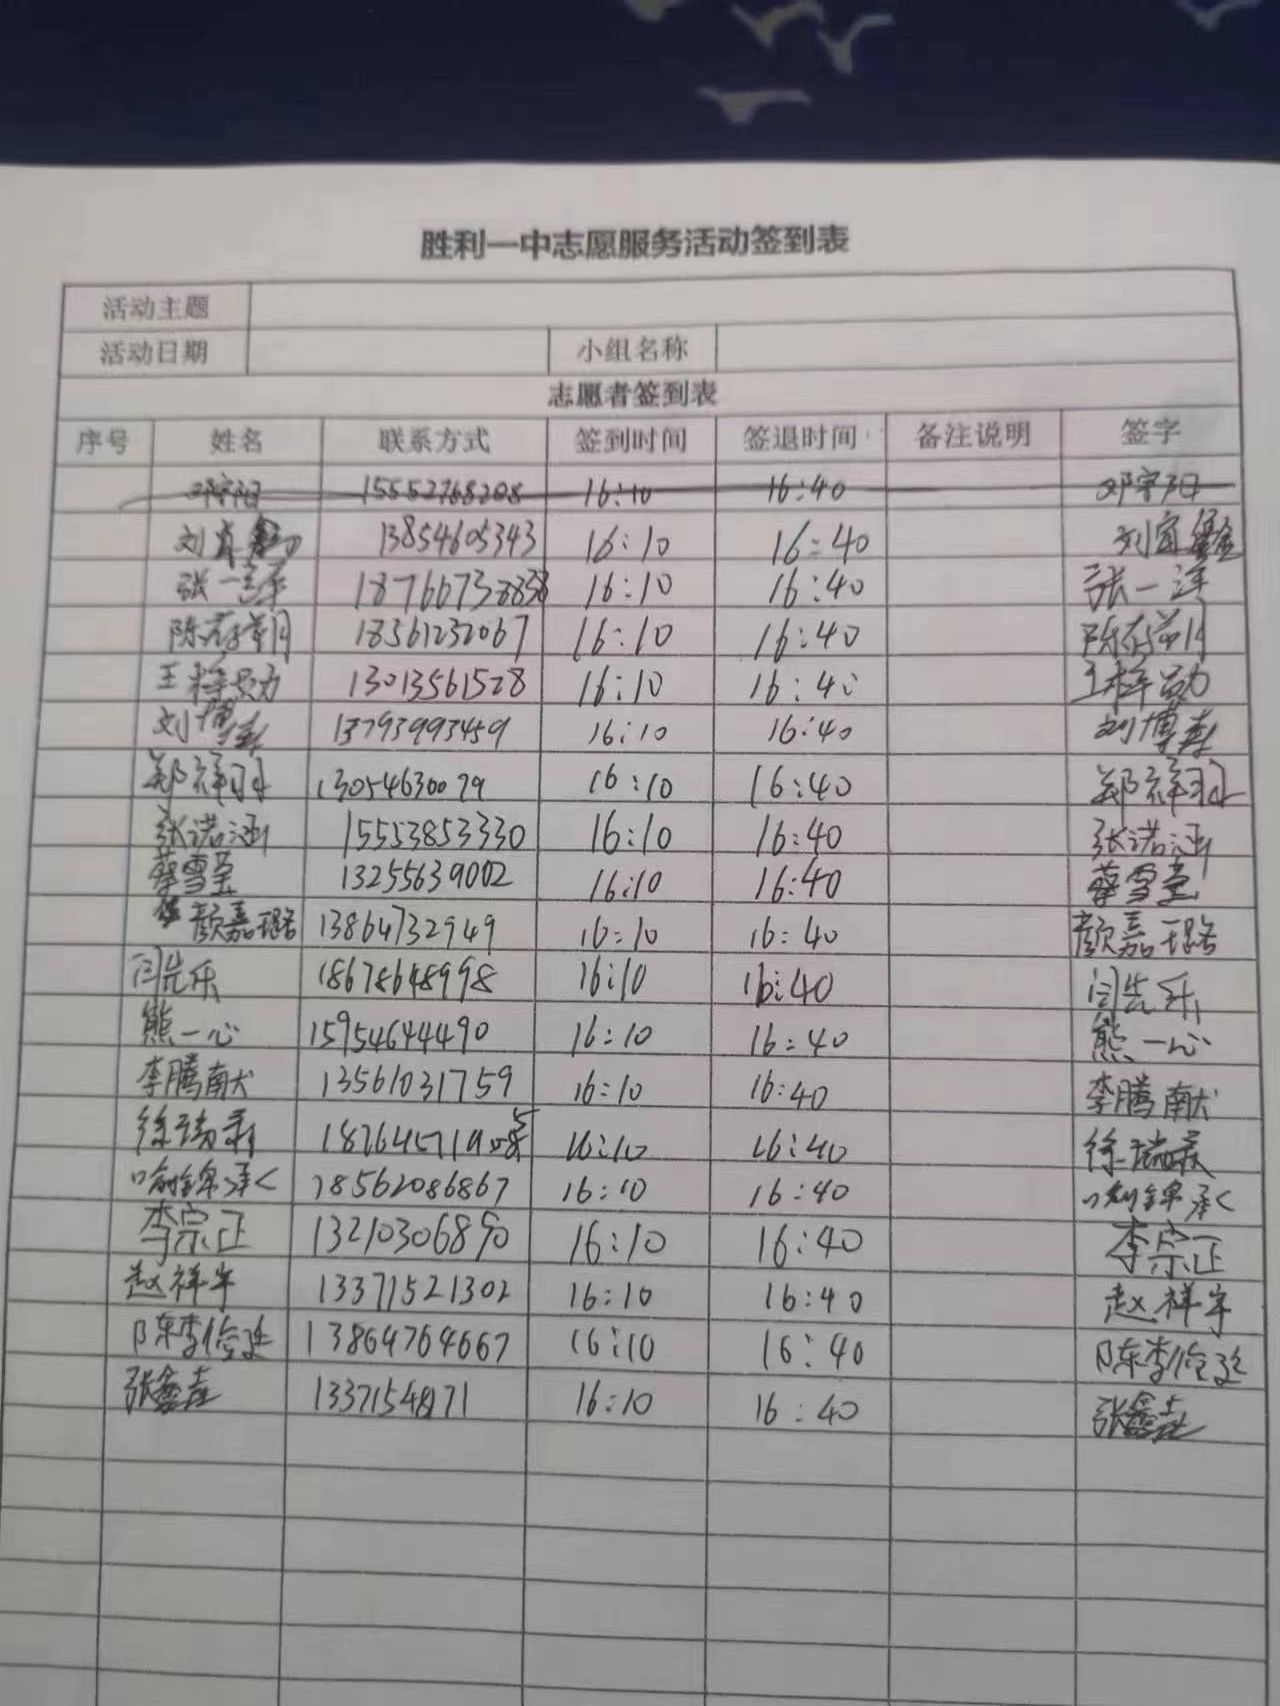 胜利一中志愿服务活动签到表
活动主题
活动日期 小组名称
志愿者签到表
序号 姓名 联系方式 签到时间 签退时间 备注说明 签字
邓宇阳 15552768208 16:10 16:40 邓宇阳
刘 13854605343 16:10 16:40 刘宜鑫
张一泽 16:10 16:40 张一泽
18561232067 16:10 16:40
王梓勋 13013561528 16:10 16:40 王梓勋
刘博 13793993459 16:10 16:40 刘博
郑祥羽 13054630079 16:10 16:40 郑祥羽
张诺涵 15553853330 16:10 16:40 张诺涵
蔡雪莹 13255639002 16:10 16:40 蔡雪莹
颜嘉璐 13864732949 16:10 16:40 颜嘉璐
闫先乐 18678648998 16:10 16:40 闫先乐
熊一心 15954644490 16:10 16:40 熊一心
李腾献 13561031759 16:10 16:40 李腾献
徐瑞 16:10 16:40 徐瑞
喻锦承 18562086867 16:10 16:40 喻锦承
李宗正 13210306890 16:10 16:40 李宗正
赵祥宇 13371521302 16:10 16:40 赵祥宇
陈李俭延 13864764667 16:10 16:40 陈李俭延
张鑫垚 16:10 16:40 张鑫垚